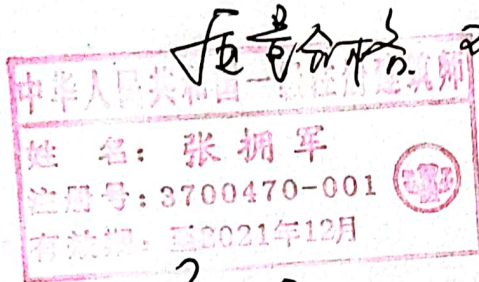 质量合格
中华人民共和国一级注册建筑师
姓 名：张拥军
注册号：3700470-001
有效期：至2021年12月